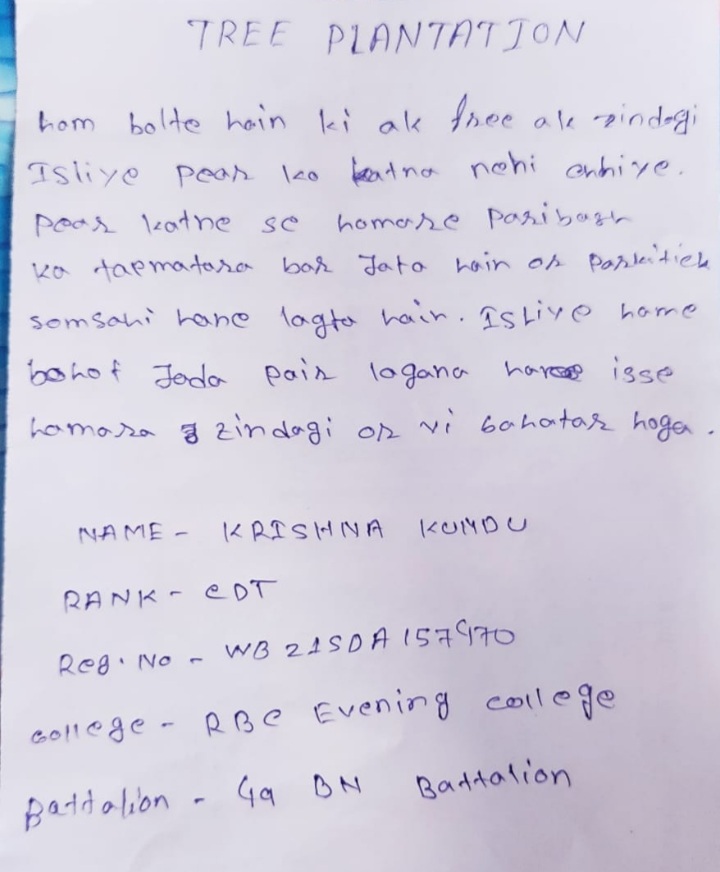 TREE PLANTATION
hom bolte hain ki ak tree ak zindagi
Isliye pear ko katna nehi chhiye.
pear katne se homare paribash
ka tapmatara bar Jata hain or parkitick
somsahi hane lagta hain. ISLiye hame
bohot Jada pair lagana isse
hamara zindagi or vi bahatar hoga.
NAME - KRISHNA KUMDU
RANK - CDT
Reg. No - WB21SDA157970
College - RBC Evening college
Battalion - BN Battalion